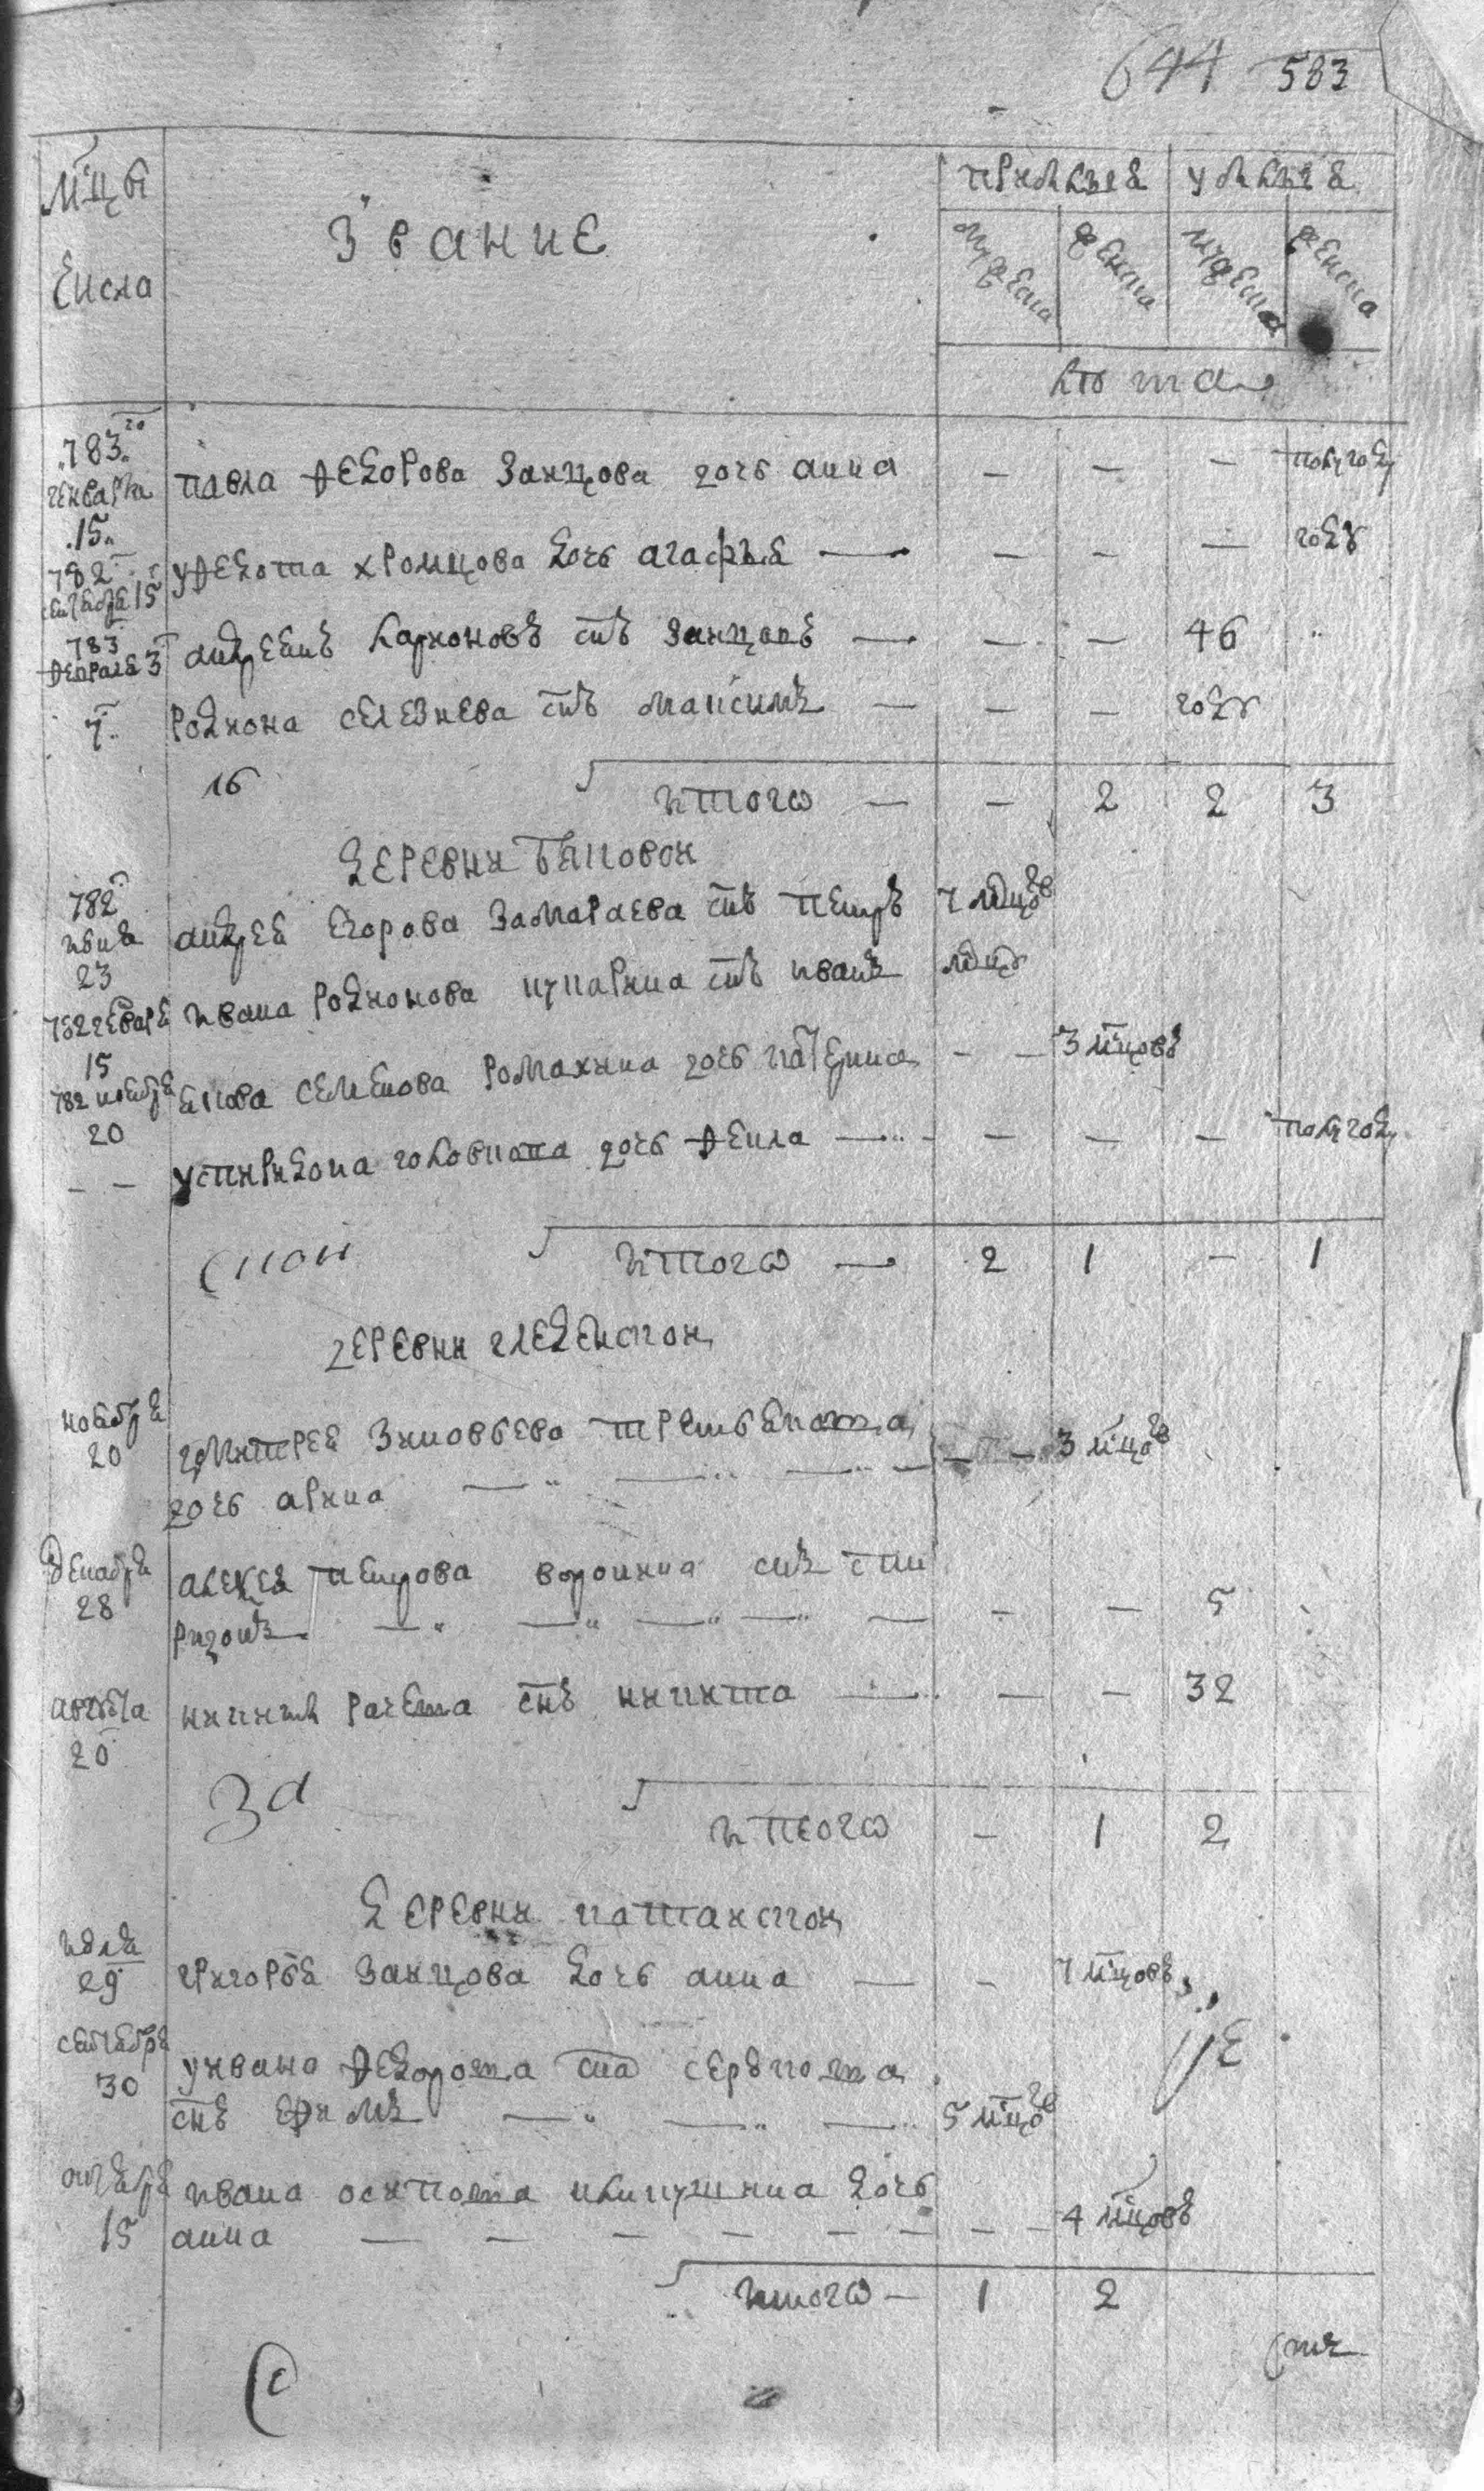 644 583
Мцы
числа
Звание
прибылыя убылыя
мужеска женска мужеска женска
лѣта
783го
генваря
15
павла федорова заицова дочь анна — — — полугоду
782
сентября 15
у федота хромцова дочь агафья — — — — году
783
февраля 3
андреянъ ларионовъ снъ заицовъ — — — 46
7
родиона селезнева снъ максимъ — — — году
итого — — 2 2 3
деревни быковои
782
июня
23
андрея егорова замараева снъ петръ 7 мцовъ
782 генваря
15
ивана родионова снъ иванъ мцъ
782 ноября
20
якова семенова ромахина дочь катерина — — 3 мцовъ
— — у спиридона дочь фекла — — — — полугоду
итого — 2 1 — 1
деревни гледенскои
ноября
20
дмитрея зиновьева третьякова
дочь арина — — — — — — 3 мцовъ
декабря
28
алексея петрова воронина снъ спи
ридонъ — — — — — — — 5
августа
20
никиты рачева снъ никита — — — 32
итого — 1 2
деревни катаискои
июля
29
григорья заицова дочь анна — — 7 мцовъ
сентября
30
у ивана федорова сна сердкова
снъ ефимъ — — — 5 мцовъ
октября
15
ивана осипова дочь
анна — — — — — — — — 4 мцовъ
итого — 1 2